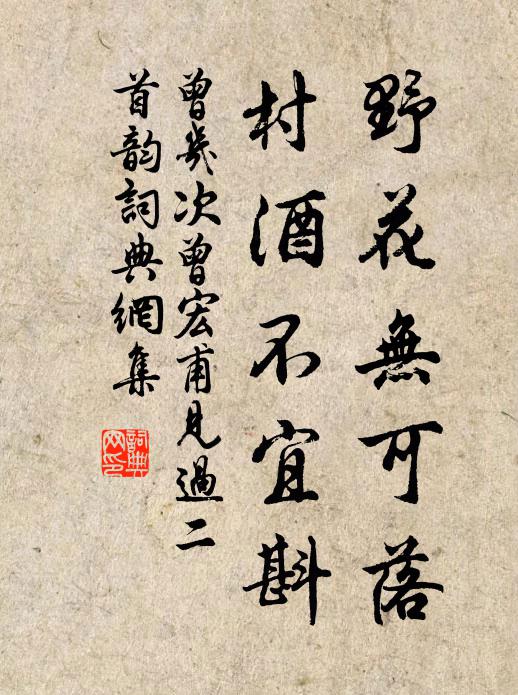 野花無可落
村酒不宜斟
曾幾次曾宏甫見過二
首韵詞典網集
詞典網印